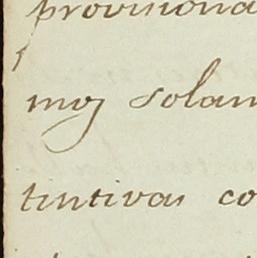 provisiona
mos solam
tintivas co